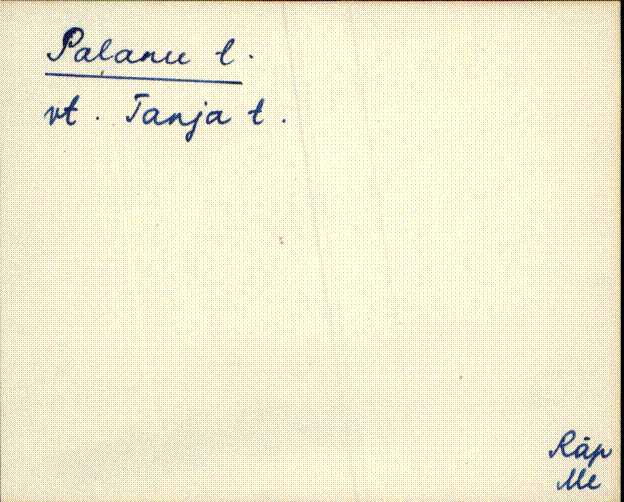 Palanu t.
vt. Tanja t.
Räp
Me